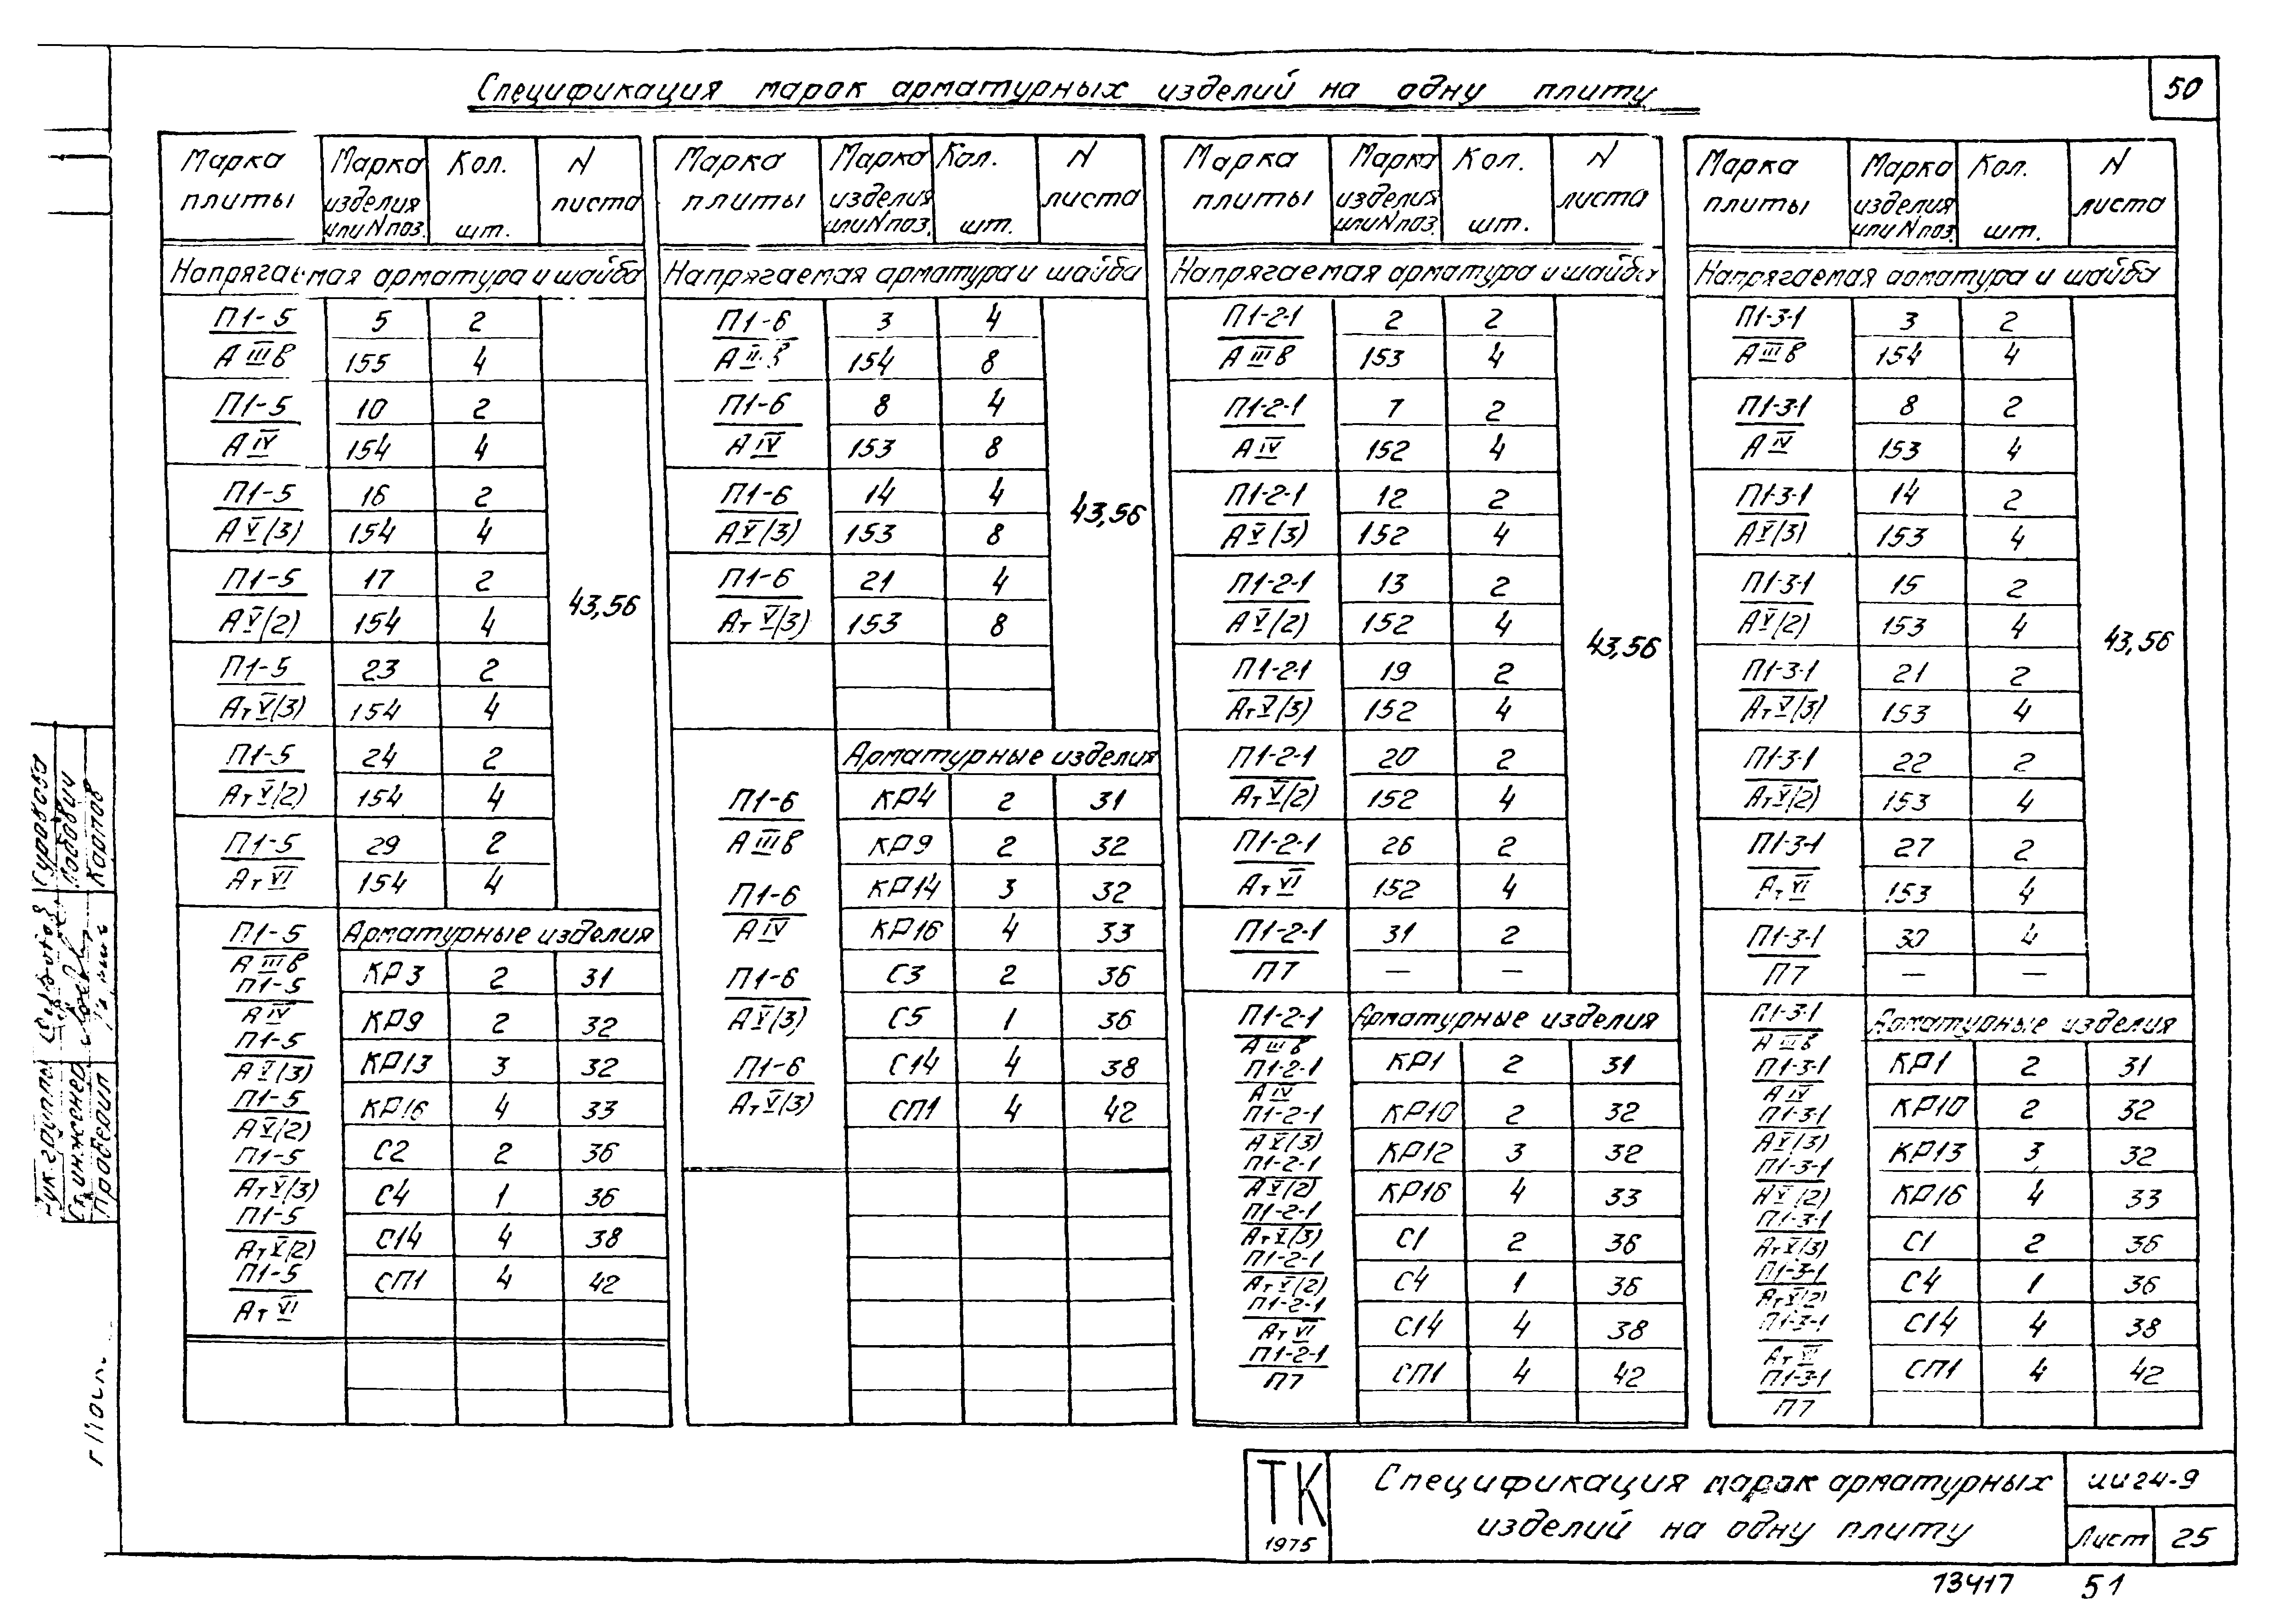 50
Спецификация марок арматурных изделий на одну плиту
Марка плиты | Марка изделия или N поз. | Кол. шт. | N листа
Напрягаемая арматура и шайба
П1-5 / АIIIв | 5 | 2
155 | 4
П1-5 / АIV | 10 | 2 | 43,56
154 | 4
П1-5 / АV(3) | 16 | 2
154 | 4
П1-5 / АV(2) | 17 | 2
154 | 4
П1-5 / АтV(3) | 23 | 2
154 | 4
П1-5 / АтV(2) | 24 | 2
154 | 4
П1-5 / АтVI | 29 | 2
154 | 4
Арматурные изделия
П1-5 / АIIIв
П1-5 / АIV
П1-5 / АV(3)
П1-5 / АV(2)
П1-5 / АтV(3)
П1-5 / АтV(2)
П1-5 / АтVI
КР3 | 2 | 31
КР9 | 2 | 32
КР13 | 3 | 32
КР16 | 4 | 33
С2 | 2 | 36
С4 | 1 | 36
С14 | 4 | 38
СП1 | 4 | 42
Марка плиты | Марка изделия или N поз. | Кол. шт. | N листа
Напрягаемая арматура и шайба
П1-6 | 3 | 4 | 43,56
154 | 8
П1-6 / АIV | 8 | 4
153 | 8
П1-6 / АV(3) | 14 | 4
153 | 8
П1-6 / АтV(3) | 21 | 4
153 | 8
Арматурные изделия
П1-6 / АIIIв
П1-6 / АIV
П1-6 / АV(3)
П1-6 / АтV(3)
КР4 | 2 | 31
КР9 | 2 | 32
КР14 | 3 | 32
КР16 | 4 | 33
С3 | 2 | 36
С5 | 1 | 36
С14 | 4 | 38
СП1 | 4 | 42
Марка плиты | Марка изделия или N поз. | Кол. шт. | N листа
Напрягаемая арматура и шайба
П1-2-1 / АIIIв | 2 | 2 | 43,56
153 | 4
П1-2-1 / АIV | 7 | 2
152 | 4
П1-2-1 / АV(3) | 12 | 2
152 | 4
П1-2-1 / АV(2) | 13 | 2
152 | 4
П1-2-1 / АтV(3) | 19 | 2
152 | 4
П1-2-1 / АтV(2) | 20 | 2
152 | 4
П1-2-1 / АтVI | 26 | 2
152 | 4
П1-2-1 / П7 | 31 | 2
— | —
Арматурные изделия
П1-2-1 / АIIIв
П1-2-1 / АIV
П1-2-1 / АV(3)
П1-2-1 / АV(2)
П1-2-1 / АтV(3)
П1-2-1 / АтV(2)
П1-2-1 / АтVI
П1-2-1 / П7
КР1 | 2 | 31
КР10 | 2 | 32
КР12 | 3 | 32
КР16 | 4 | 33
С1 | 2 | 36
С4 | 1 | 36
С14 | 4 | 38
СП1 | 4 | 42
Марка плиты | Марка изделия или N поз. | Кол. шт. | N листа
Напрягаемая арматура и шайба
П1-3-1 / АIIIв | 3 | 2 | 43,56
154 | 4
П1-3-1 / АIV | 8 | 2
153 | 4
П1-3-1 / АV(3) | 14 | 2
153 | 4
П1-3-1 / АV(2) | 15 | 2
153 | 4
П1-3-1 / АтV(3) | 21 | 2
153 | 4
П1-3-1 / АтV(2) | 22 | 2
153 | 4
П1-3-1 / АтVI | 27 | 2
153 | 4
П1-3-1 / П7 | 30 | 4
— | —
Арматурные изделия
П1-3-1 / АIIIв
П1-3-1 / АIV
П1-3-1 / АV(3)
П1-3-1 / АV(2)
П1-3-1 / АтV(3)
П1-3-1 / АтV(2)
П1-3-1 / АтVI
П1-3-1 / П7
КР1 | 2 | 31
КР10 | 2 | 32
КР13 | 3 | 32
КР16 | 4 | 33
С1 | 2 | 36
С4 | 1 | 36
С14 | 4 | 38
СП1 | 4 | 42
Рук. группы Суровова
Ст. инженер
Проверил Карпов
ТК 1975
Спецификация марок арматурных
изделий на одну плиту
ИИ24-9
Лист 25
13417 51